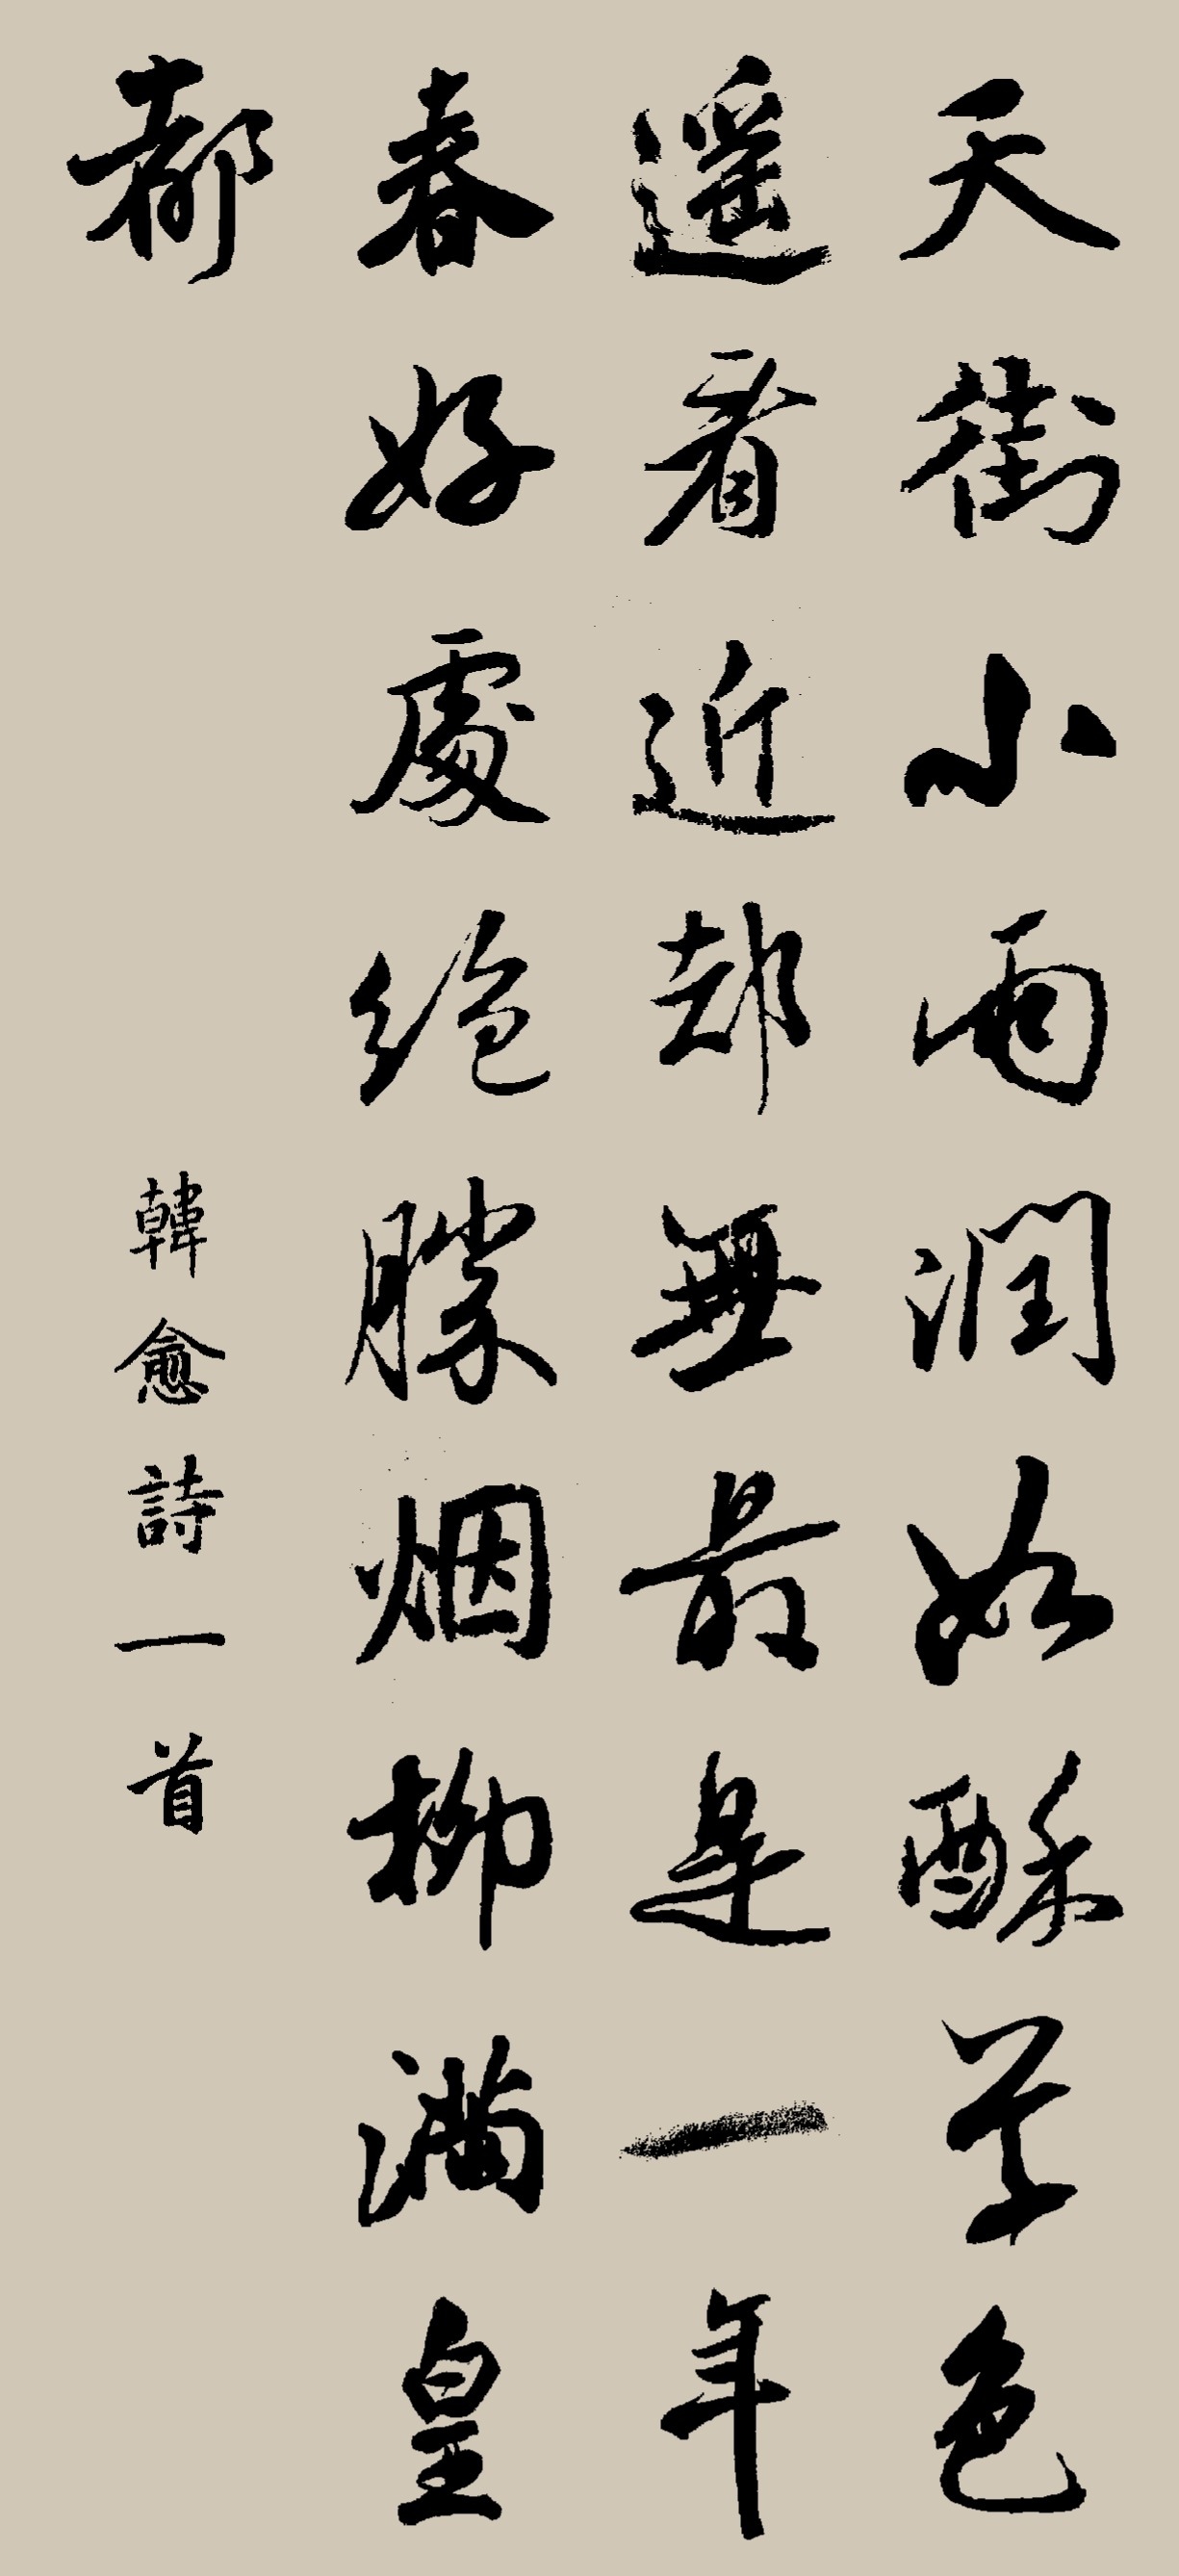 天街小雨潤如酥草色
遥看近却無最是一年
春好處絶勝烟柳滿皇
都
韓愈詩一首